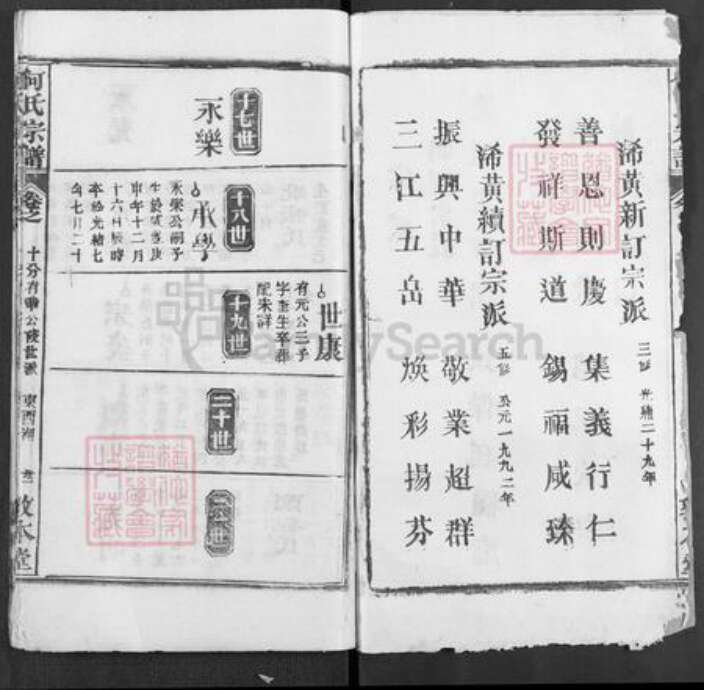 浠黄新訂宗派
三修 光緒二十九年
善恩則慶 集義行仁
發祥斯道 錫福咸臻
浠黄續訂宗派
五修 公元一九九二年
振興中華 敬業超群
三江五岳 煥彩揚芬
十七世
永樂
十八世
承學
永樂公嗣子
申年十二月
十六日辰時
卒於光緒七
年七月二十
十九世
世康
有元公三子
字奎生卒葬
配朱詳
二十世
何氏宗譜
卷之
東西湖
敦本堂
FamilySearch